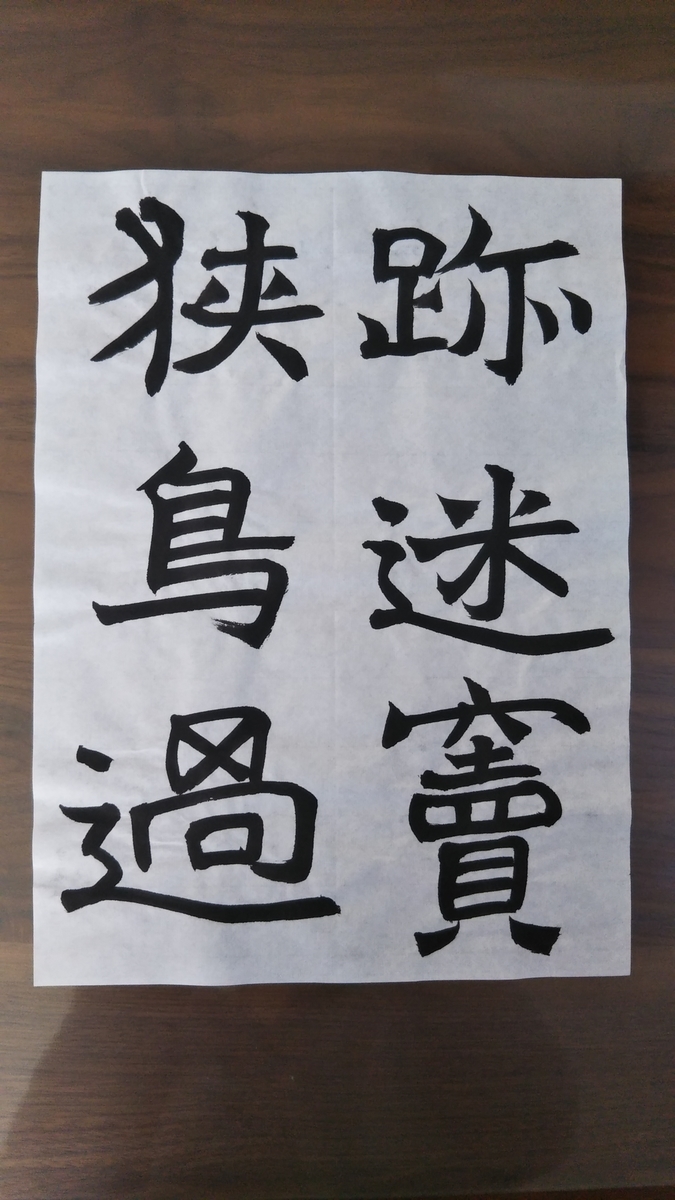 跡迷竇
狭鳥過